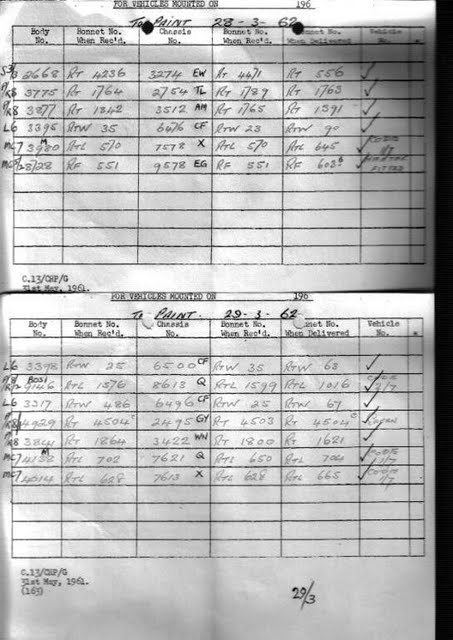 FOR VEHICLES MOUNTED ON 196
To PAINT 28-3-62
Body No. Bonnet No. When Rec'd. Chassis No. Bonnet No. When Rec'd. Bonnet No. When Delivered Vehicle No.
2668 RT 4236 3274 EW RT 4471 RT 556 ✓
3775 RT 1764 2754 TL RT 1789 RT 1763 ✓
R8 3877 RT 1342 3512 AM RT 1765 RT 1391 ✓
L6 3395 RTW 35 6476 CF RTW 23 RTW 90 ✓
MC7 3980 M RTL 570 7578 X RTL 570 RTL 645 ✓
28/28 RF 551 9578 EG RF 551 RF 603 ✓ HEATER FITTED
C.13/CHP/G
31st May, 1961.
FOR VEHICLES MOUNTED ON 196
To PAINT. 29-3-62
Body No. Bonnet No. When Rec'd. Chassis No. Bonnet No. When Rec'd. Bonnet No. When Delivered Vehicle No.
L6 3398 RTW 25 6500 CF RTW 35 RTW 63 ✓
RTL 1576 8613 Q RTL 1599 RTL 1016 ✓
L6 3317 RTW 486 6496 CF RTW 25 RTW 67 ✓
4929 RT 4504 2495 GY RT 4503 RT 4504 ✓
R8 3841 RT 1864 3422 WN RT 1800 RT 1621 ✓
MC7 4138 M RTL 702 7621 Q RTL 650 RTL 704 ✓
MC7 4014 RTL 628 7613 X RTL 628 RTL 665 ✓
C.13/CHP/G
31st May, 1961.
(163)
29/3